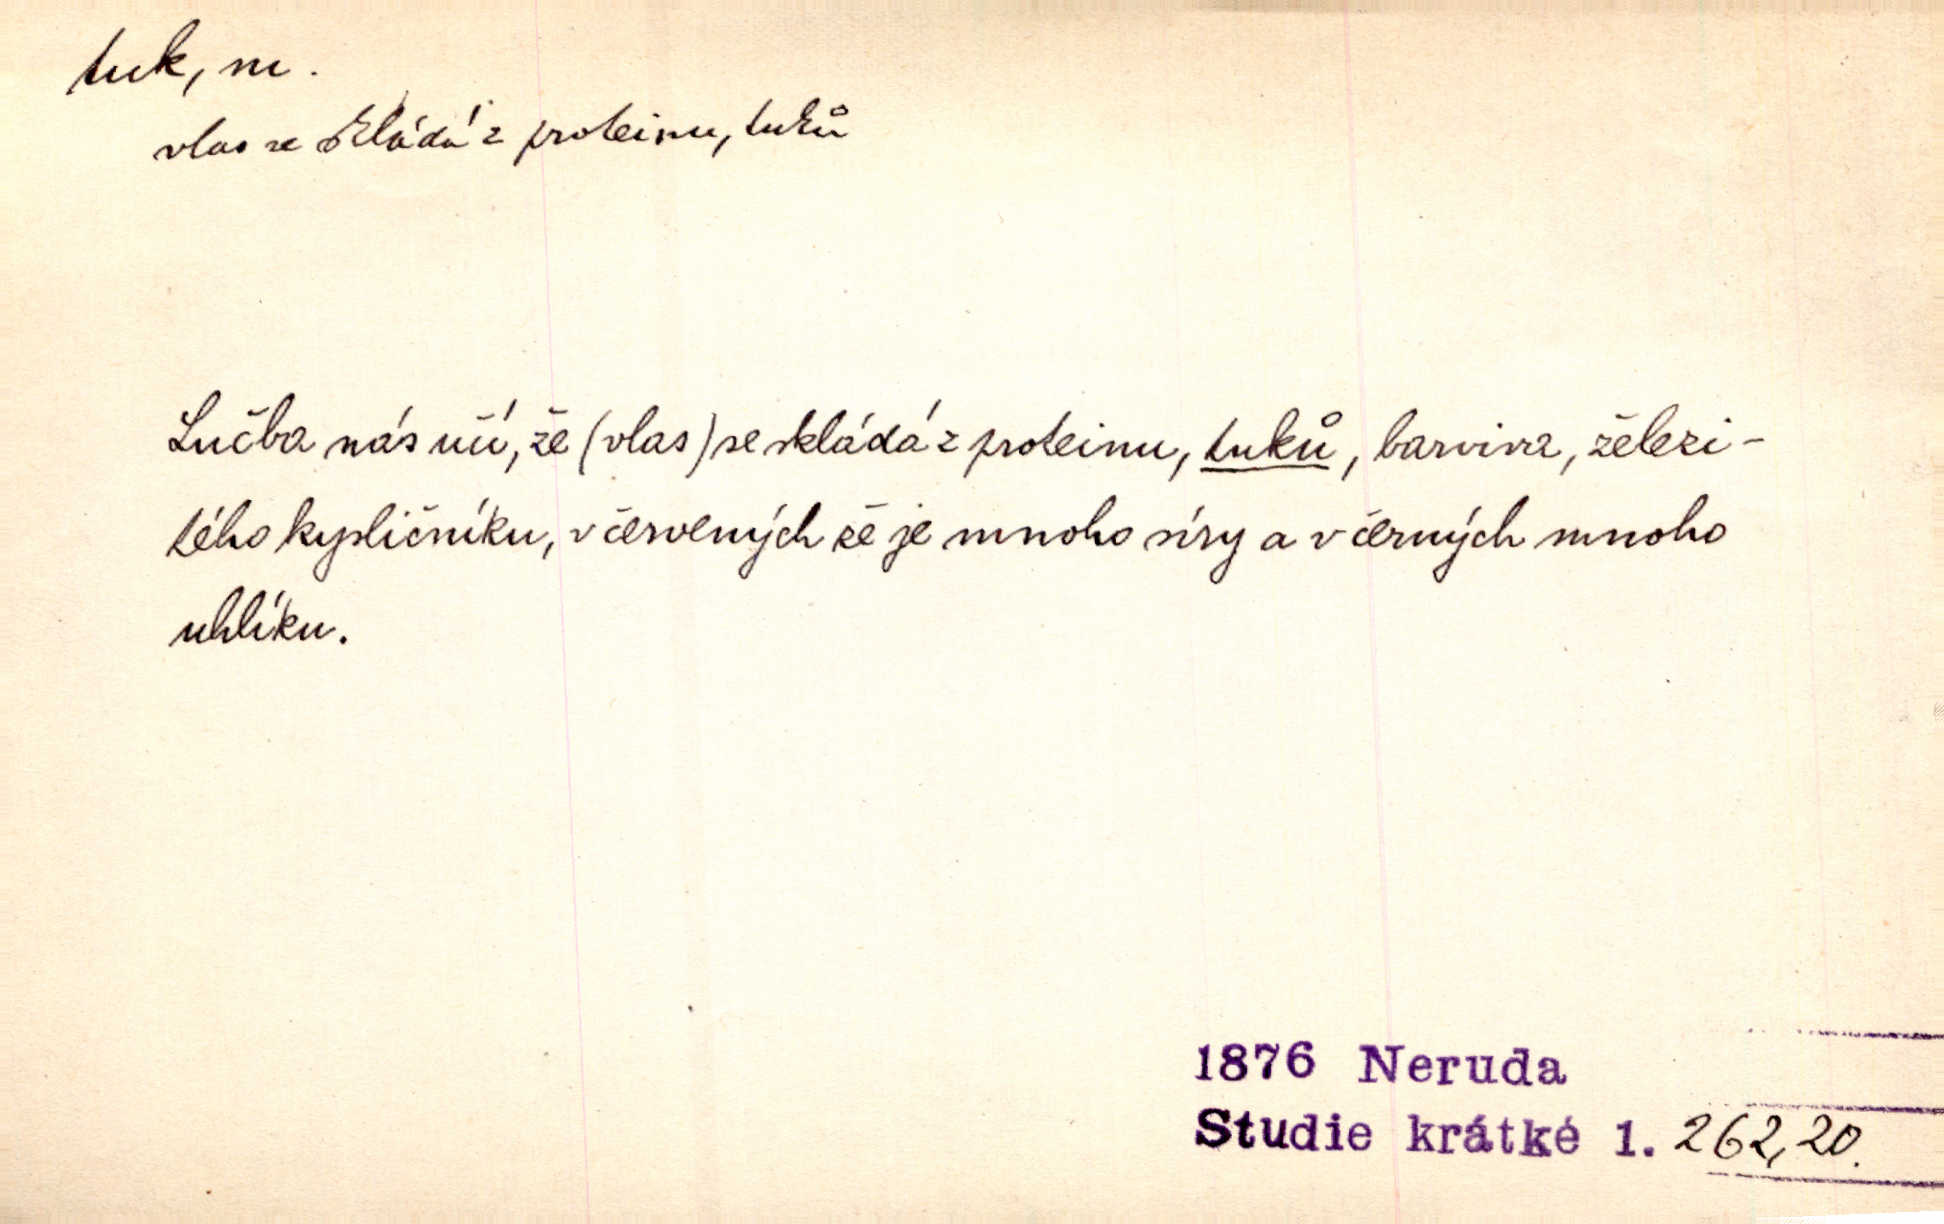 tuk, m.
vlas se skládá z proteinu, tuků
Lučba nás učí, že (vlas) se skládá z proteinu, tuků, barviva, želези-
tého kypličníku, v červených že je mnoho síry a v černých mnoho
uhlíku.
1876 Neruda
Studie krátké 1. 262,20.